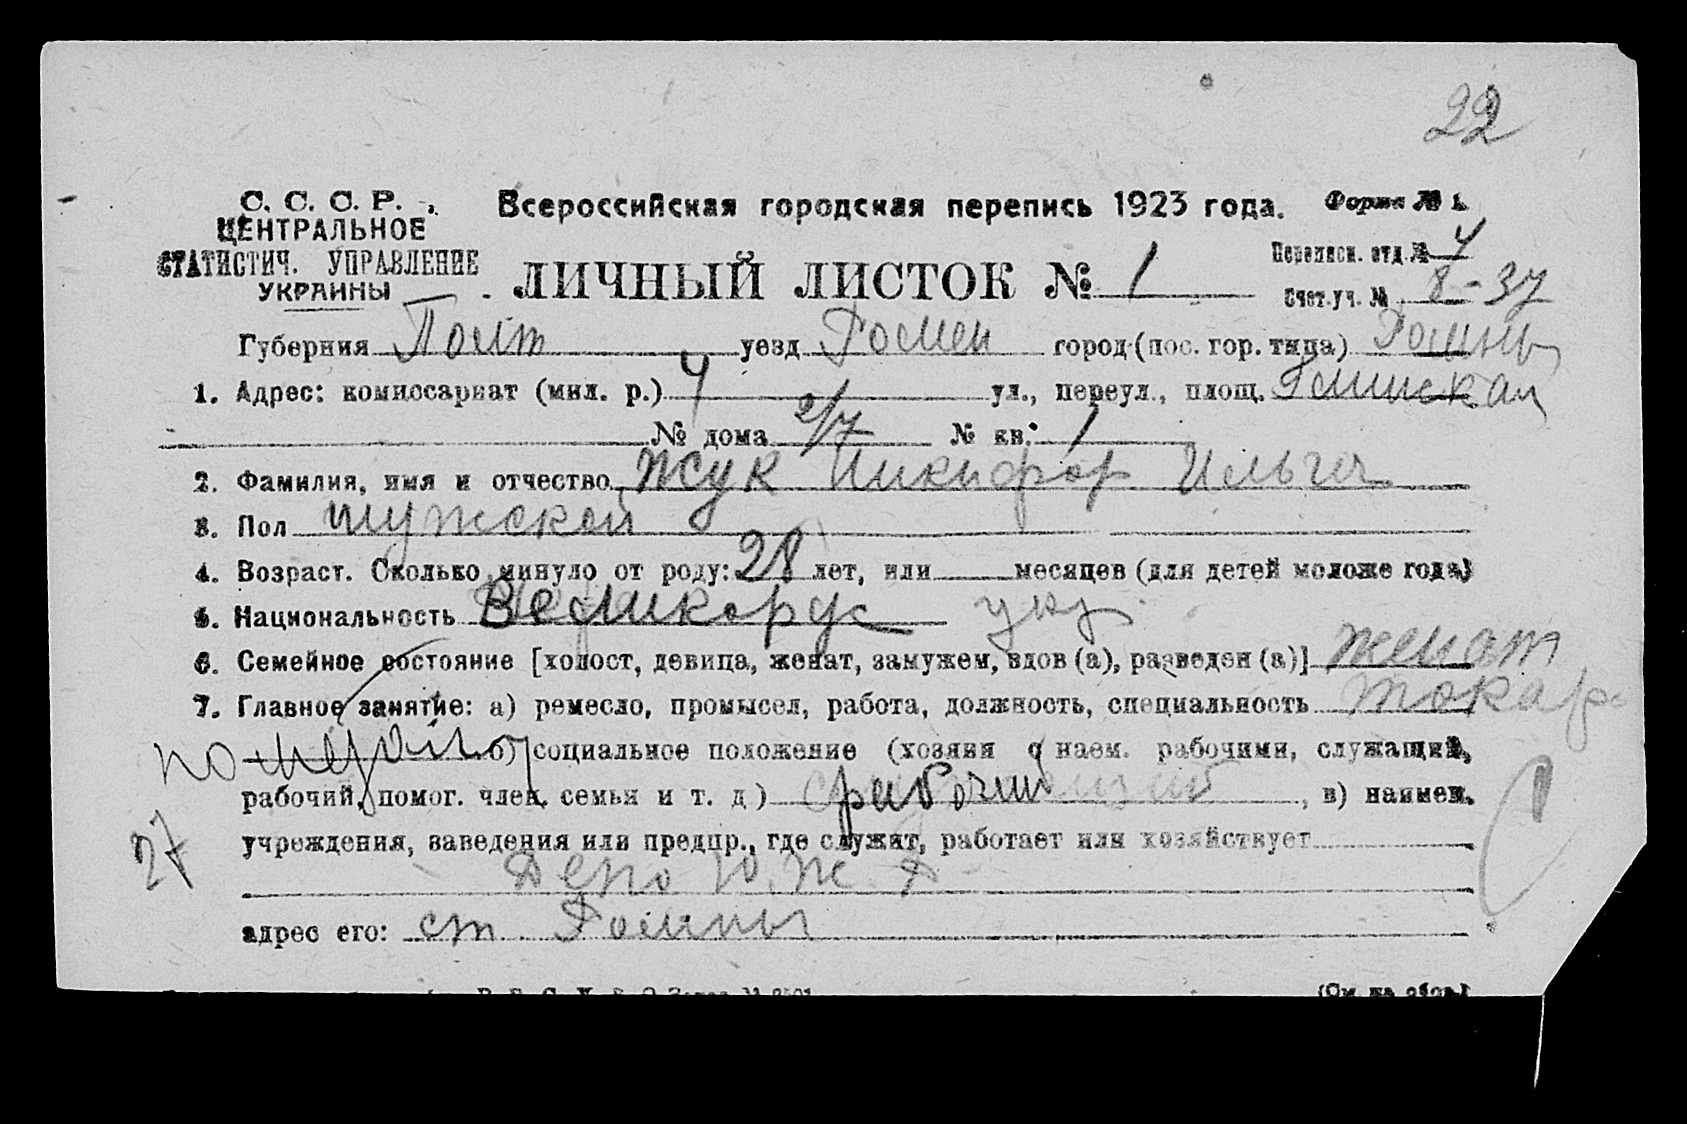 22
С. С. С. Р. Всероссийская городская перепись 1923 года. Форма № 1.
ЦЕНТРАЛЬНОЕ
СТАТИСТИЧ. УПРАВЛЕНИЕ
УКРАИНЫ
ЛИЧНЫЙ ЛИСТОК № 1
Переписн. отд. № 4
Счет. уч. № 8-37
Губерния Полт уезд Ромен город (пос. гор. типа) Ромны
1. Адрес: комиссариат (мил. р.) 4 ул., переул., площ.
№ дома 2/7 № кв. 1
2. Фамилия, имя и отчество Жук Никифор Ильич
3. Пол мужской
4. Возраст. Сколько минуло от роду: 28 лет, или месяцев (для детей моложе года)
5. Национальность Великорус укр
6. Семейное состояние [холост, девица, женат, замужем, вдов (а), разведен (а)] женат
7. Главное занятие: а) ремесло, промысел, работа, должность, специальность токарь
по металлу б) социальное положение (хозяин с наем. рабочими, служащий,
рабочий, помог. член. семьи и т. д) рабочий, в) наимен.
27
учреждения, заведения или предпр., где служит, работает или хозяйствует
Депо Ю. Ж. Д
адрес его: ст Ромны
(См. на обор.)